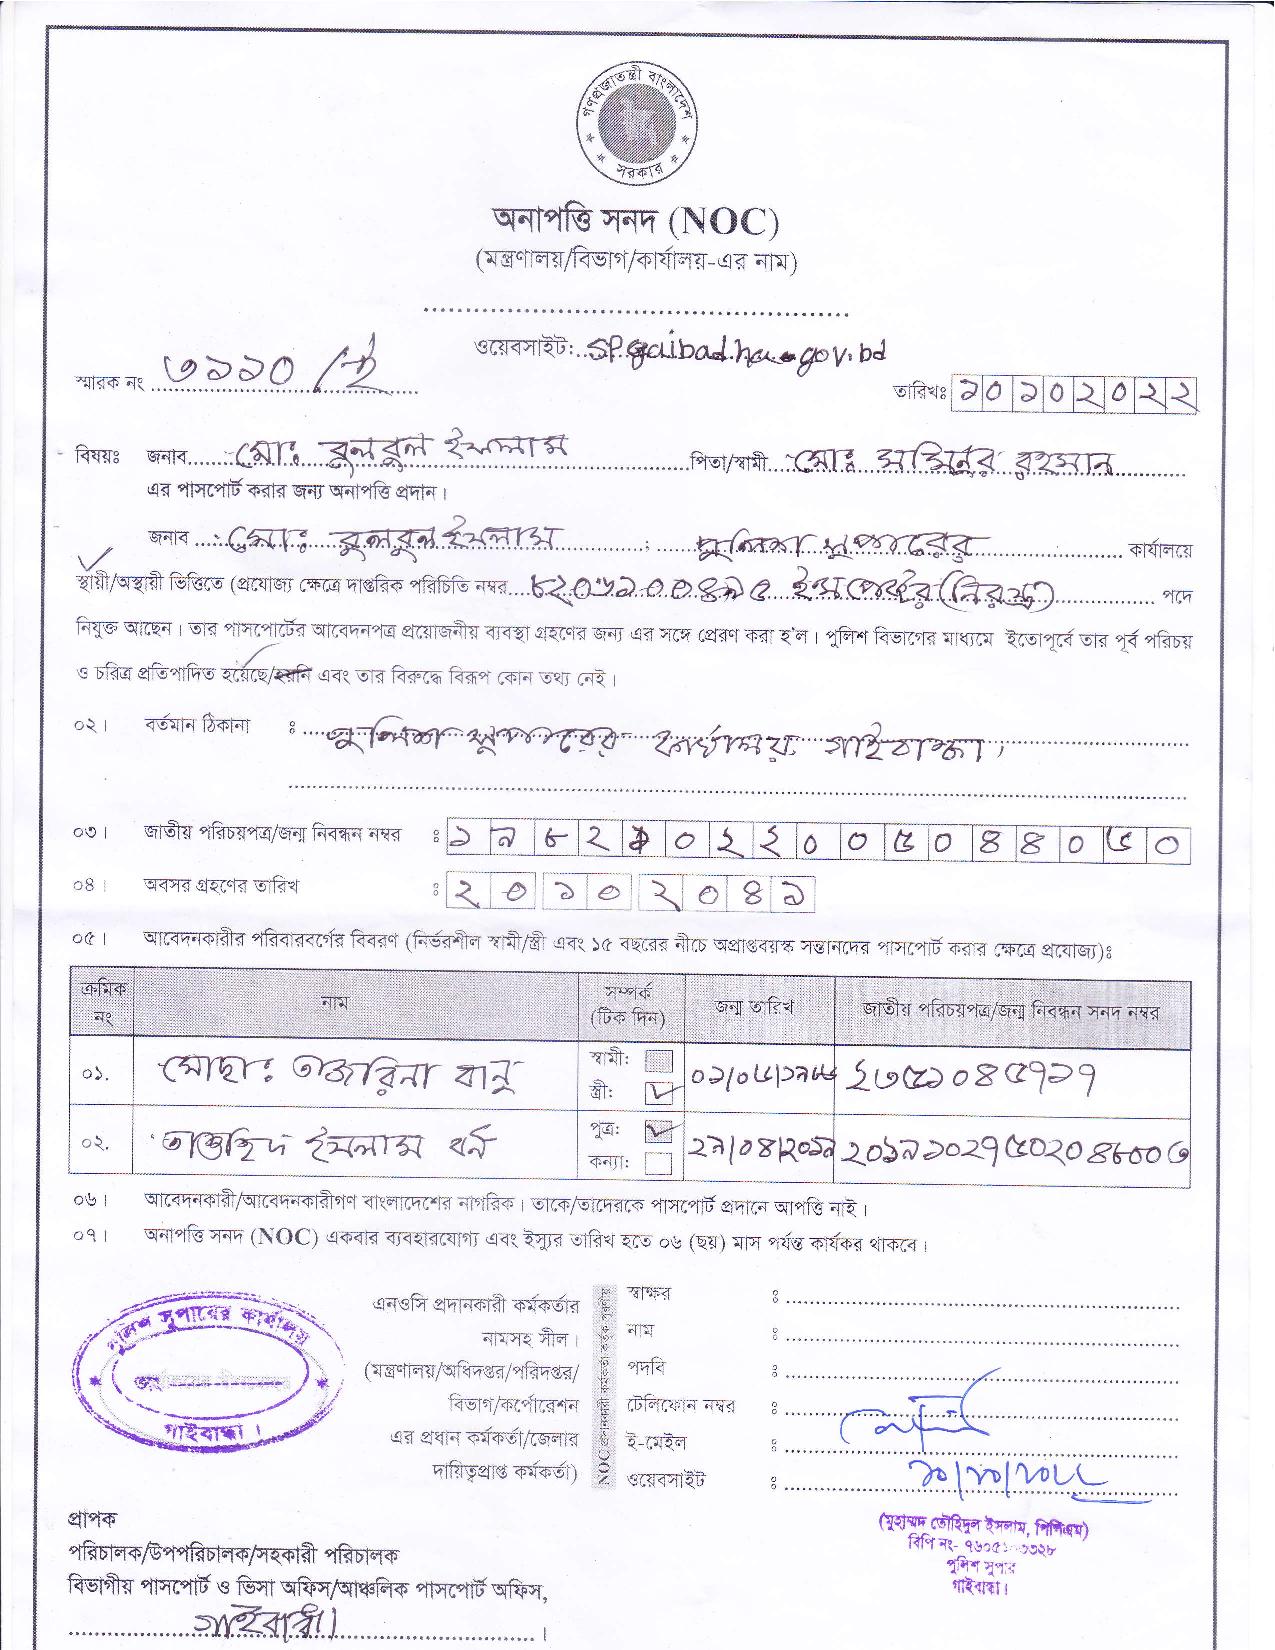 গণপ্রজাতন্ত্রী বাংলাদেশ
সরকার
অনাপত্তি সনদ (NOC)
(মন্ত্রণালয়/বিভাগ/কার্যালয়-এর নাম)
ওয়েবসাইট: sp.gaibadha.gov.bd
স্মারক নং ৩১১০/ই
তারিখঃ ১০১০২০২২
বিষয়ঃ জনাব মোঃ বুলবুল ইসলাম পিতা/স্বামী মোঃ রহমান
এর পাসপোর্ট করার জন্য অনাপত্তি প্রদান।
জনাব মোঃ বুলবুল ইসলাম ; পুলিশ সুপারের কার্যালয়ে
স্থায়ী/অস্থায়ী ভিত্তিতে (প্রযোজ্য ক্ষেত্রে দাপ্তরিক পরিচিতি নম্বর ইন্সপেক্টর (নিরস্ত্র) পদে
নিযুক্ত আছেন। তার পাসপোর্টের আবেদনপত্র প্রয়োজনীয় ব্যবস্থা গ্রহণের জন্য এর সঙ্গে প্রেরণ করা হ'ল। পুলিশ বিভাগের মাধ্যমে ইতোপূর্বে তার পূর্ব পরিচয়
ও চরিত্র প্রতিপাদিত হয়েছে/হয়নি এবং তার বিরুদ্ধে বিরূপ কোন তথ্য নেই।
০২। বর্তমান ঠিকানা ঃ পুলিশ সুপারের কার্যালয় গাইবান্ধা।
০৩। জাতীয় পরিচয়পত্র/জন্ম নিবন্ধন নম্বর ঃ ১৯৮২১০২২০০৫০৪৪০৫০
০৪। অবসর গ্রহণের তারিখ ঃ ২০১০২০৪১
০৫। আবেদনকারীর পরিবারবর্গের বিবরণ (নির্ভরশীল স্বামী/স্ত্রী এবং ১৫ বছরের নীচে অপ্রাপ্তবয়স্ক সন্তানদের পাসপোর্ট করার ক্ষেত্রে প্রযোজ্য)ঃ
ক্রমিক নং নাম সম্পর্ক (টিক দিন) জন্ম তারিখ জাতীয় পরিচয়পত্র/জন্ম নিবন্ধন সনদ নম্বর
০১. মোছাঃ তাজরিনা বানু স্বামী: স্ত্রী: ০১/০৫/১৯৮৮ ২৩৫১০৪৫৭১৭
০২. ইসলাম পুত্র: কন্যা: ২৭/০৪/২০১৯ ২০১৯১০২৭৫০২০৪৮০০৩
০৬। আবেদনকারী/আবেদনকারীগণ বাংলাদেশের নাগরিক। তাকে/তাদেরকে পাসপোর্ট প্রদানে আপত্তি নাই।
০৭। অনাপত্তি সনদ (NOC) একবার ব্যবহারযোগ্য এবং ইস্যুর তারিখ হতে ০৬ (ছয়) মাস পর্যন্ত কার্যকর থাকবে।
পুলিশ সুপারের কার্যালয়
গাইবান্ধা।
এনওসি প্রদানকারী কর্মকর্তার
নামসহ সীল।
(মন্ত্রণালয়/অধিদপ্তর/পরিদপ্তর/
বিভাগ/কর্পোরেশন
এর প্রধান কর্মকর্তা/জেলার
দায়িত্বপ্রাপ্ত কর্মকর্তা)
স্বাক্ষর ঃ
নাম ঃ
পদবি ঃ
টেলিফোন নম্বর ঃ
ই-মেইল ঃ
ওয়েবসাইট ঃ
১০/১০/২০২২
(মুহাম্মদ তৌহিদুল ইসলাম, পিপিএম)
বিপি নং-
পুলিশ সুপার
গাইবান্ধা।
প্রাপক
পরিচালক/উপপরিচালক/সহকারী পরিচালক
বিভাগীয় পাসপোর্ট ও ভিসা অফিস/আঞ্চলিক পাসপোর্ট অফিস,
গাইবান্ধা।